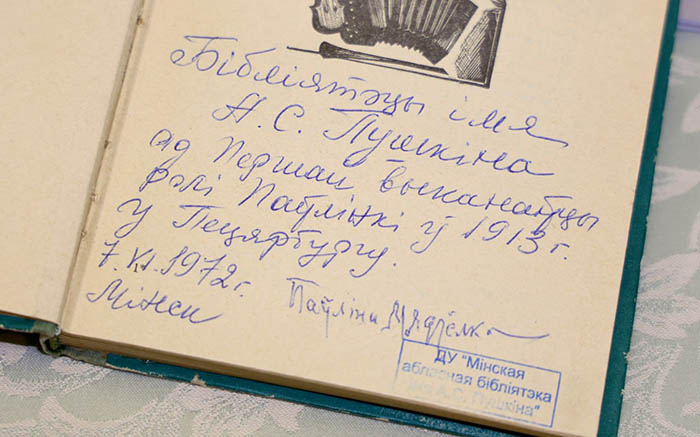 Бібліятэцы імя
А. С. Пушкіна
ад першай выканаўцы
ролі Паўлінкі ў 1913 г.
у Пецярбургу.
7.VI.1972 г.
Мінск
Паўліна Мядзёлка
ДУ "Мінская
абласная бібліятэка
імя А.С. Пушкіна"